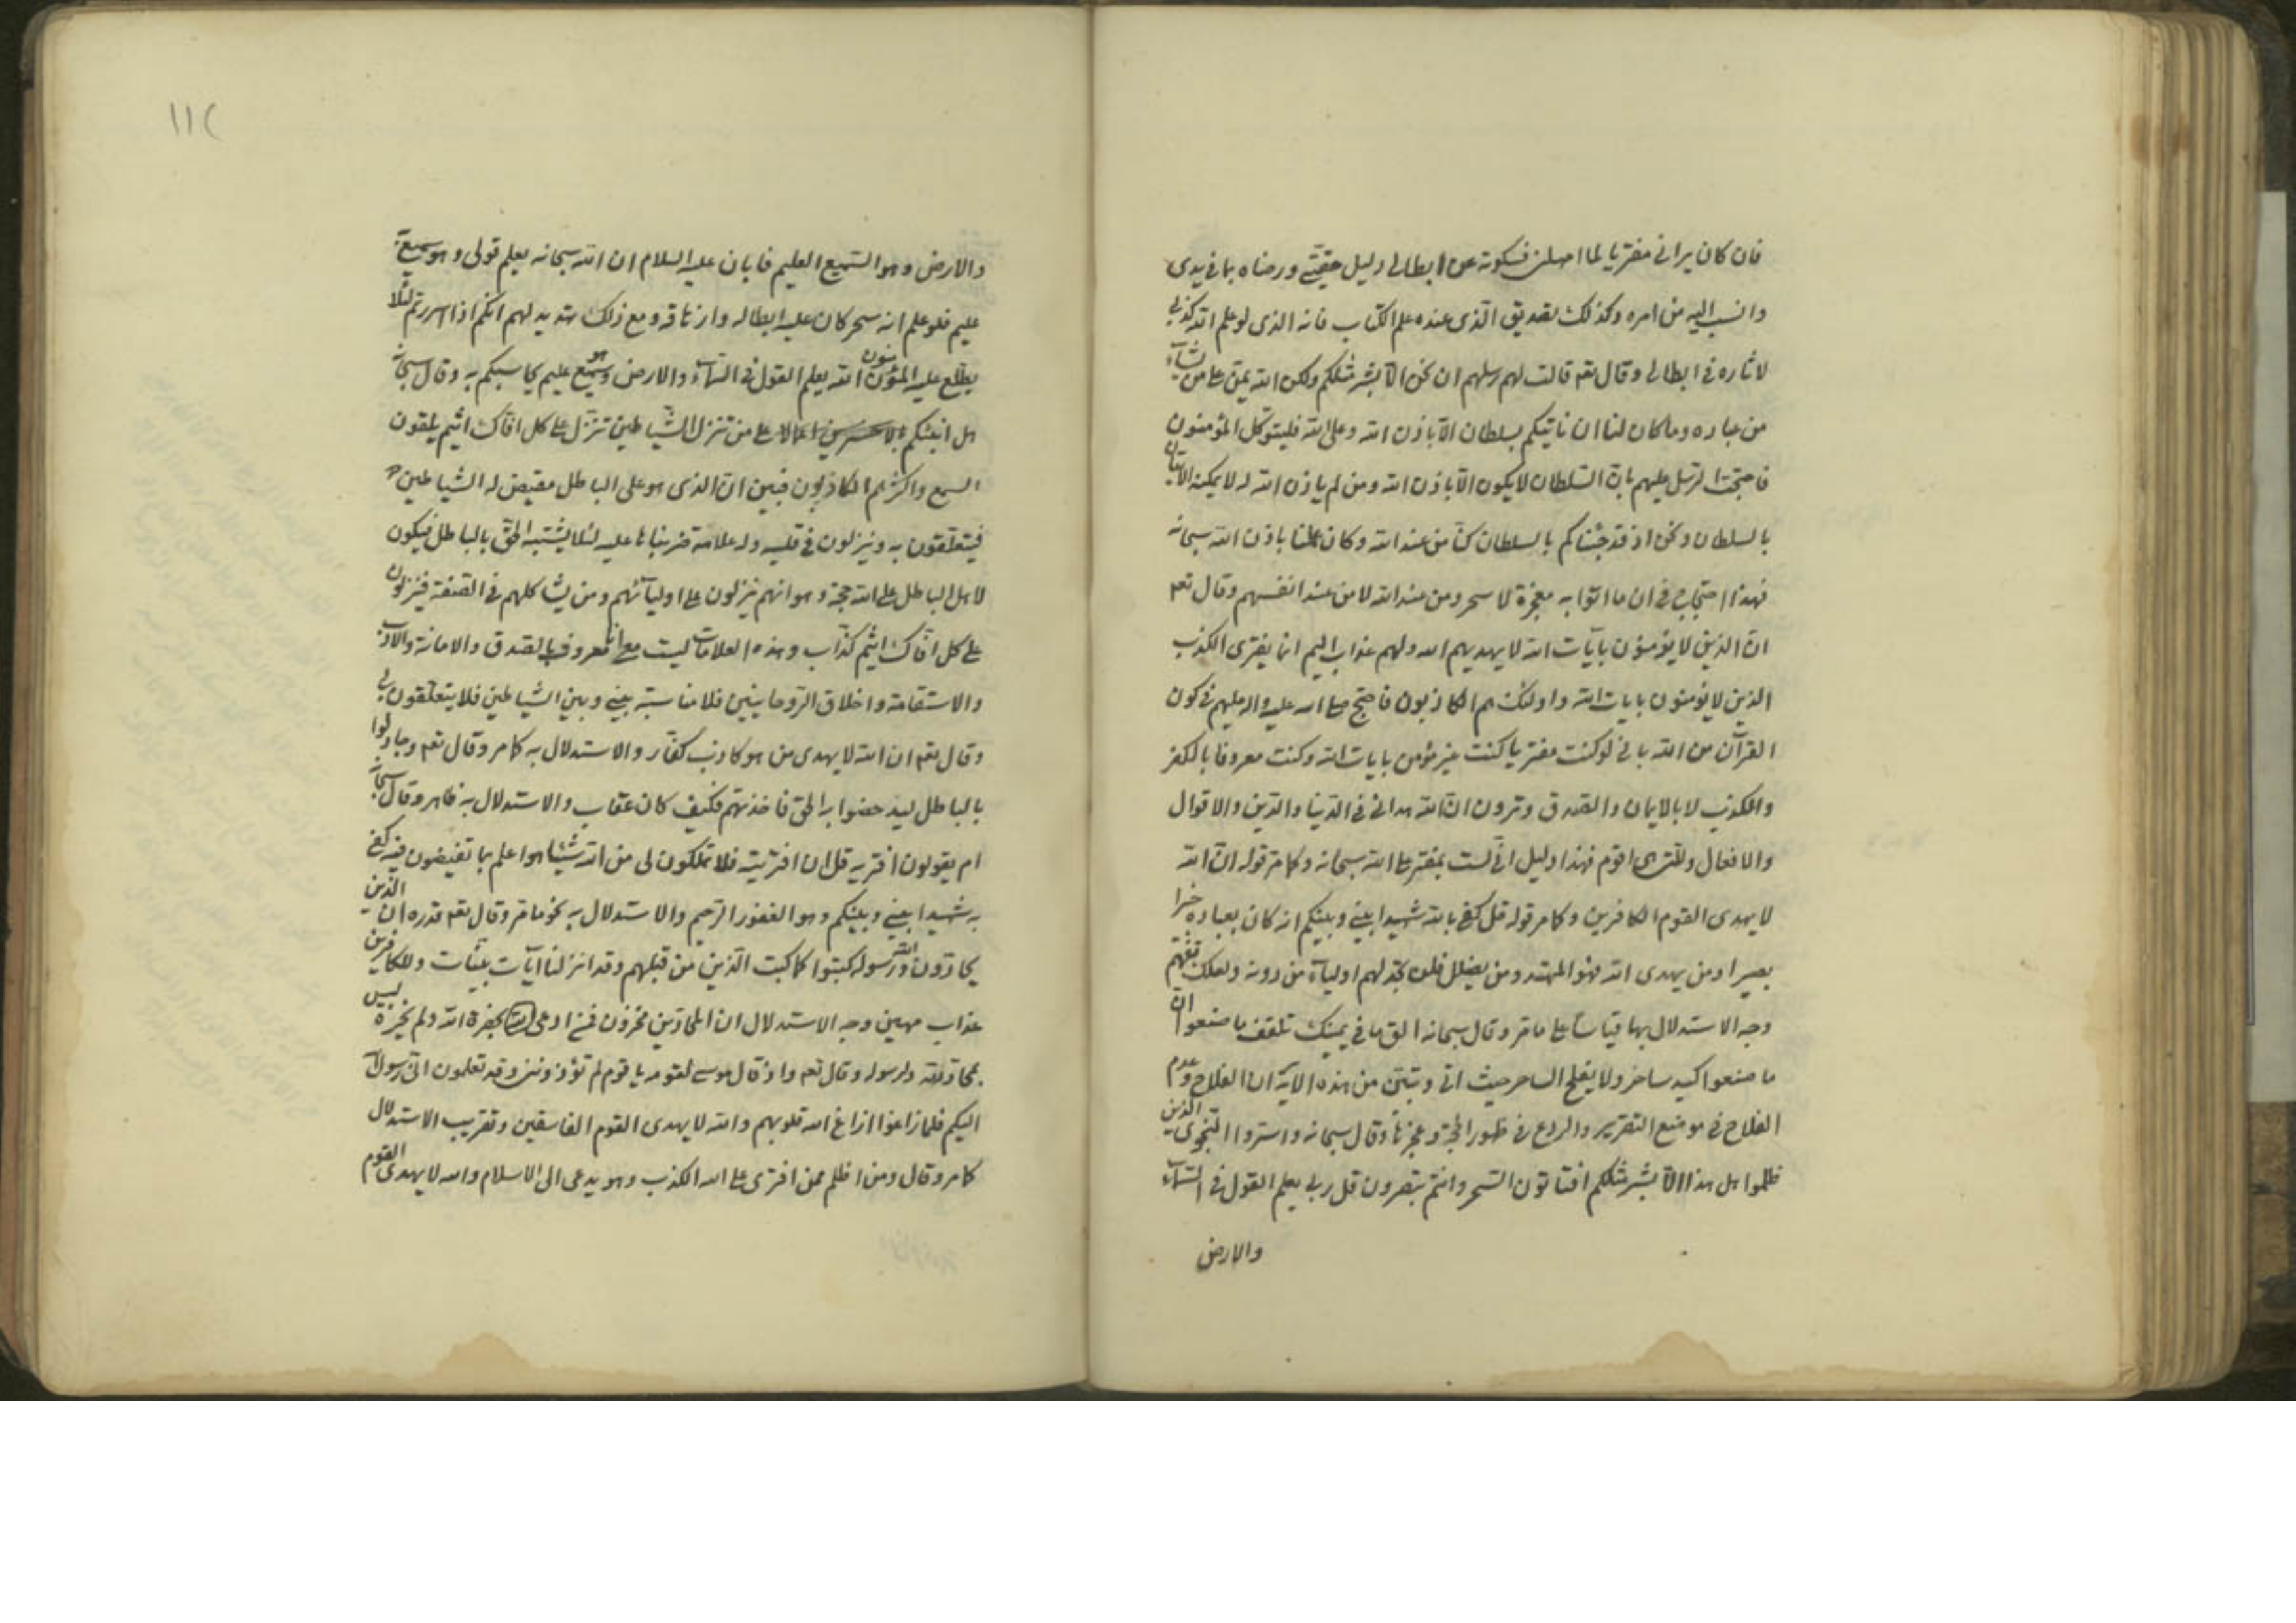 فان كان يراني مفتريا لما امهلن فسكوته عن ابطالي دليل حقيتي ورضاه بما في يدي
وانسب اليه من امره وكذلك تصديق الذي عنده علم الكتاب فانه الذي لو علم الله كذبي
لاثاره في ابطالي وقال تعـ قالت لهم رسلهم ان نحن الا بشر مثلكم ولكن الله يمن على من يشآء
من عباده وما كان لنا ان ناتيكم بسلطان الا باذن الله وعلى الله فليتوكل المؤمنون
فاحتجت الرسل عليهم بان السلطان لا يكون الا باذن الله ومن لم ياذن الله له لا يمكنه الاتيان
بالسلطان ونحن اذ قد جئناكم بالسلطان كنا من عند الله وكان عملنا باذن الله سبحانه
فهذا احتجاج في ان ما اتوا به معجزة لا سحر ومن عند الله لا من عند انفسهم وقال تعـ
ان الذين لا يؤمنون بآيات الله لا يهديهم الله ولهم عذاب اليم انما يفترى الكذب
الذين لا يؤمنون بايات الله واولئك هم الكاذبون فاحتج صلى الله عليه واله عليهم في كون
القرآن من الله باني لو كنت مفتريا كنت غير مؤمن بايات الله وكنت معروفا بالكفر
والكذب لا بالايمان والصدق وترون ان الله هداني في الدنيا والدين والاقوال
والافعال وللتي هي اقوم فهذا دليل اني لست بمفتر على الله سبحانه وكما مر قوله ان الله
لا يهدى القوم الكافرين وكما مر قوله قل كفى بالله شهيدا بيني وبينكم انه كان بعباده خبيرا
بصيرا ومن يهدى الله فهو المهتد ومن يضلل فلن تجد لهم اوليآء من دونه ولعلك تفهم
وجه الاستدلال بها قياسا على ما مر وقال سبحانه الق ما في يمينك تلقف ما صنعوا ان
ما صنعوا كيد ساحر ولا يفلح الساحر حيث اتى وتبين من هذه الآية ان الفلاح وعدم
الفلاح في موضع التقرير والردع في ظهور الحجة وعجزها وقال سبحانه واسروا النجوى الذين
ظلموا هل هذا الا بشر مثلكم افتاتون السحر وانتم تبصرون قل ربي يعلم القول في السمآء
والارض
١١٢
والارض وهو السميع العليم فابان عليه السلام ان الله سبحانه يعلم قولى وهو سميع
عليم فلو علم انه سحر كان عليه ابطاله وازهاقه ومع ذلك تهديد لهم انكم اذا اسررتم لئلا
يطلع عليه المؤمنون الله يعلم القول في السمآء والارض وهو سميع عليم يحاسبكم به وقال سبحانه
هل انبئكم بالاخسرين اعمالا على من تنزل الشياطين تنزل على كل افاك اثيم يلقون
السمع واكثرهم الكاذبون فبين ان الذى هو على الباطل مقيض له الشياطين
فيتعلقون به وينزلون في قلبه وله علامة ضربناها عليه لئلا يشتبه الحق بالباطل فيكون
لاهل الباطل على الله حجة وهو انهم ينزلون على اوليآئهم ومن يشاكلهم في الصفة فينزلون
على كل افاك اثيم كذاب وهذه العلامات ليست معي انا معروف بالصدق والامانة والادب
والاستقامة واخلاق الروحانيين فلا مناسبة بيني وبين الشياطين فلا يتعلقون بي
وقال تعـ ان الله لا يهدى من هو كاذب كفار والاستدلال به كما مر وقال تعـ وجادلوا
بالباطل ليدحضوا به الحق فاخذتهم فكيف كان عقاب والاستدلال به ظاهر وقال سبحانه
ام يقولون افتريه قل ان افتريته فلا تملكون لى من الله شيئا هو اعلم بما تفيضون فيه كفى
به شهيدا بيني وبينكم وهو الغفور الرحيم والاستدلال به نحو ما مر وقال تعـ قدره ان الذين
يحادون الله ورسوله كبتوا كما كبت الذين من قبلهم وقد انزلنا آيات بينات وللكافرين
عذاب مهين وجه الاستدلال ان المحادين مخزون فمن ادعى بحضرة الله ولم يخزه ليس
بمحاد لله ولرسوله وقال تعـ واذ قال موسى لقومه يا قوم لم تؤذونني وقد تعلمون انى رسول الله
اليكم فلما زاغوا ازاغ الله قلوبهم والله لا يهدى القوم الفاسقين وتقريب الاستدلال
كما مر وقال ومن اظلم ممن افترى على الله الكذب وهو يدعى الى الاسلام والله لا يهدى القوم